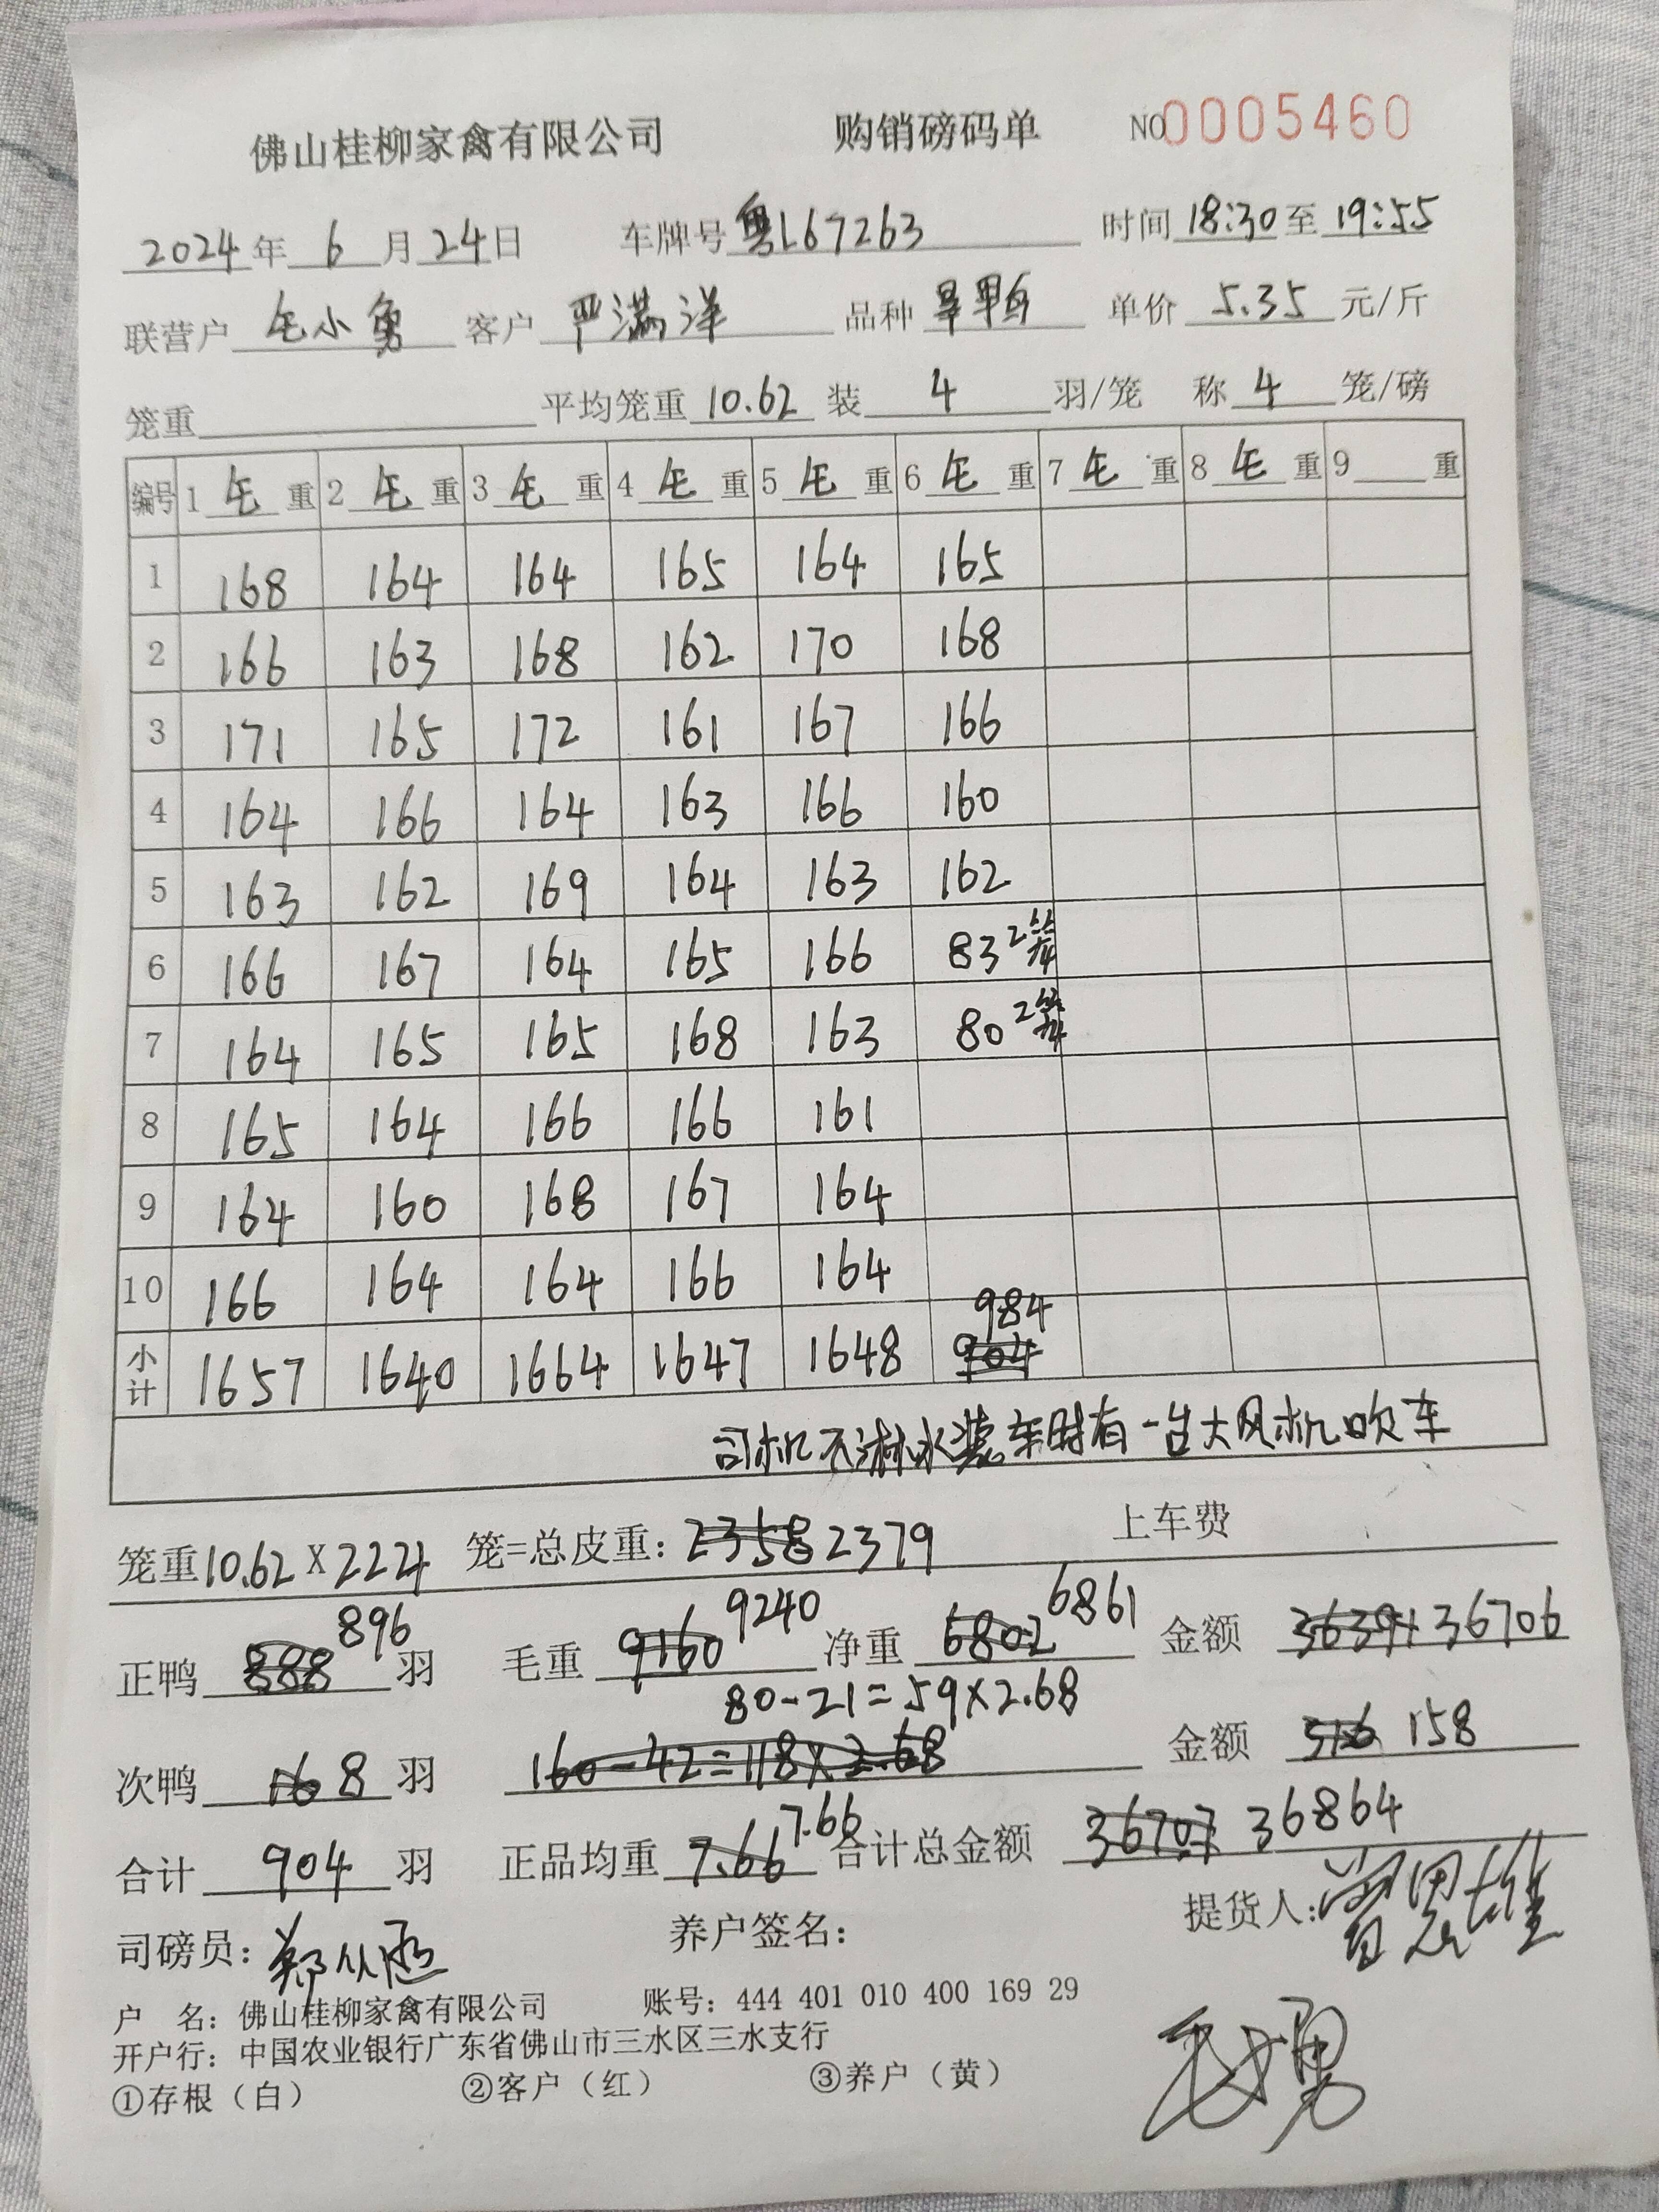 佛山桂柳家禽有限公司 购销磅码单 NO 0005460
2024年 6 月 24日 车牌号 粤L67263 时间 18:30 至 19:55
联营户 毛小勇 客户 严满洋 品种 单价 5.35 元/斤
笼重 平均笼重 10.62 装 4 羽/笼 称 4 笼/磅
编号 1 毛 重 2 毛 重 3 毛 重 4 毛 重 5 毛 重 6 毛 重 7 毛 重 8 毛 重 9 重
1 168 164 164 165 164 165
2 166 163 168 162 170 168
3 171 165 172 161 167 166
4 164 166 164 163 166 160
5 163 162 169 164 163 162
6 166 167 164 165 166 83 2笼
7 164 165 165 168 163 80 2笼
8 165 164 166 166 161
9 164 160 168 167 164
10 166 164 164 166 164
小计 1657 1640 1664 1647 1648 904 984
司机不淋水装车时有一台大风机吹车
笼重10.62 X 224 笼=总皮重: 2358 2379 上车费
正鸭 888 896 羽 毛重 9160 9240 净重 6802 6861 金额 36391 36706
80-21=59×2.68
次鸭 16 8 羽 160-42=118×2.68 金额 316 158
合计 904 羽 正品均重 7.66 7.66 合计总金额 36707 36864
司磅员: 养户签名: 提货人:
户 名: 佛山桂柳家禽有限公司 账号: 444 401 010 400 169 29
开户行: 中国农业银行广东省佛山市三水区三水支行
①存根（白） ②客户（红） ③养户（黄）